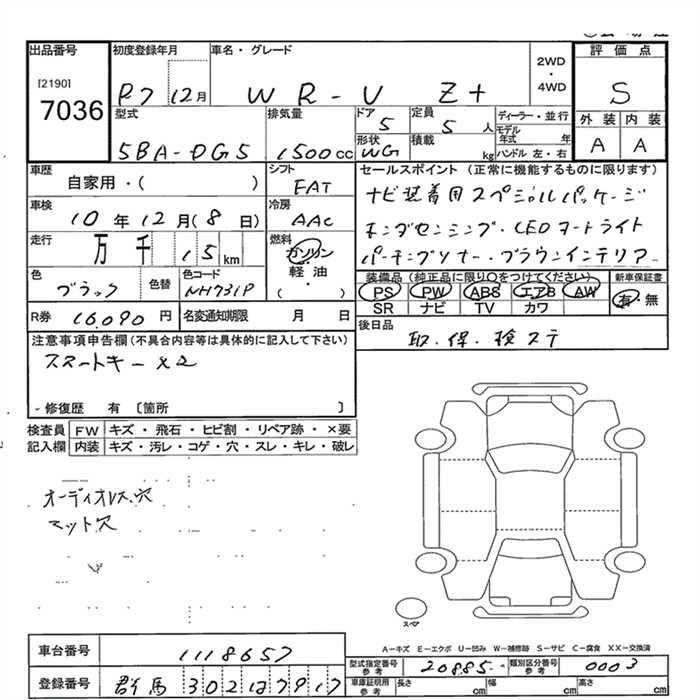 出品番号 初度登録年月 車名・グレード 2WD・4WD 評価点
[2190]
7036 R7 12月 WR-V Z+ S
型式 排気量 ドア 5 定員 5人 ディーラー・並行 外装 内装
5BA-DG5 1500cc 形状 WG 積載 kg モデル年式 年 ハンドル 左・右 A A
車歴 シフト セールスポイント (正常に機能するものに限ります)
自家用・( ) FAT ナビ装着用スペシャルパッケージ
車検 冷房
10年12月(8日) AAC ホンダセンシング・LEDオートライト
走行 燃料
万 千 15km ガソリン パーキングソナー・ブラウンインテリアー
軽油
・
( )
色 色替 色コード 装備品(純正品に限り○をつけてください) 新車保証書
ブラック NH731P PS PW ABS エアB AW 有・無
SR ナビ TV カワ
R券 16,090円 名変通知期限 月 日 後日品
取.保.検ステ
注意事項申告欄(不具合内容等は具体的に記入して下さい)
スマートキー×2
・修復歴 有 〔箇所 〕
検査員 FW キズ・飛石・ヒビ割・リペア跡・×要
記入欄 内装 キズ・汚レ・コゲ・穴・スレ・キレ・破レ
オーディオレス穴
マット穴
スペア
A―キズ E―エクボ U―凹み W―補修跡 S―サビ C―腐食 XX―交換済
車台番号 1118657
型式指定番号 参考 20885 類別区分番号 参考 0003
登録番号 群馬 302 は 7917
車庫証明用 参考 長さ cm 幅 cm 高さ cm